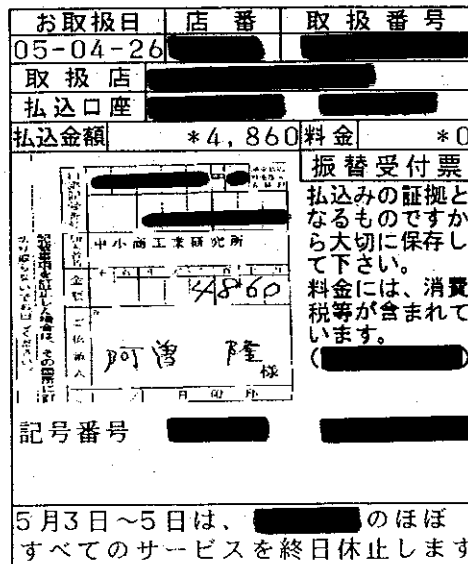 お取扱日 店番 取扱番号
05-04-26
取扱店
払込口座
払込金額 *4,860 料金 *0
振替受付票
払込みの証拠と
なるものですか
ら大切に保存し
て下さい。
料金には、消費
税等が含まれて
います。
(      )
中小商工業研究所
金額 4860
阿曽 隆 様
日附印
記載事項を訂正した場合は、その箇所に訂
記号番号
5月3日～5日は、 のほぼ
すべてのサービスを終日休止します